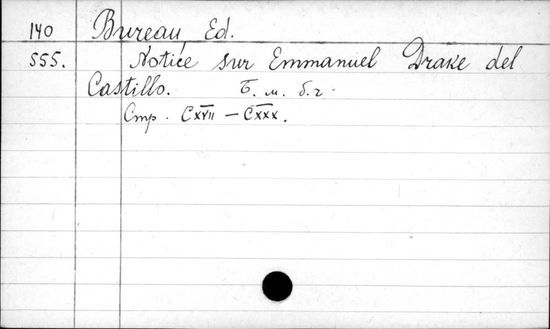 140 Bureau, Ed.
555. Notice sur Emmanuel Drake del
Castillo. Б. м. б. г.
Стр. CXVII – CXXX.